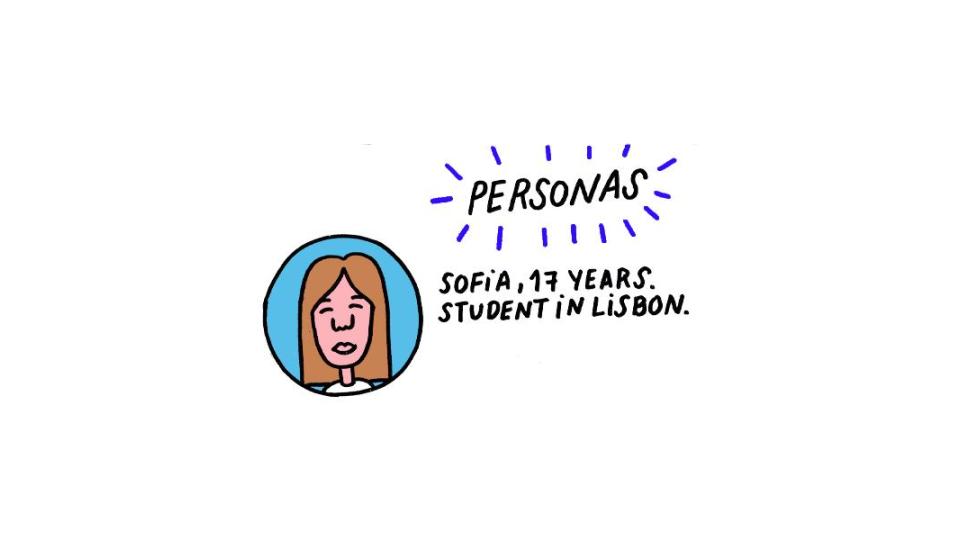 PERSONAS
SOFiA, 17 YEARS.
STUDENT iN LiSBON.